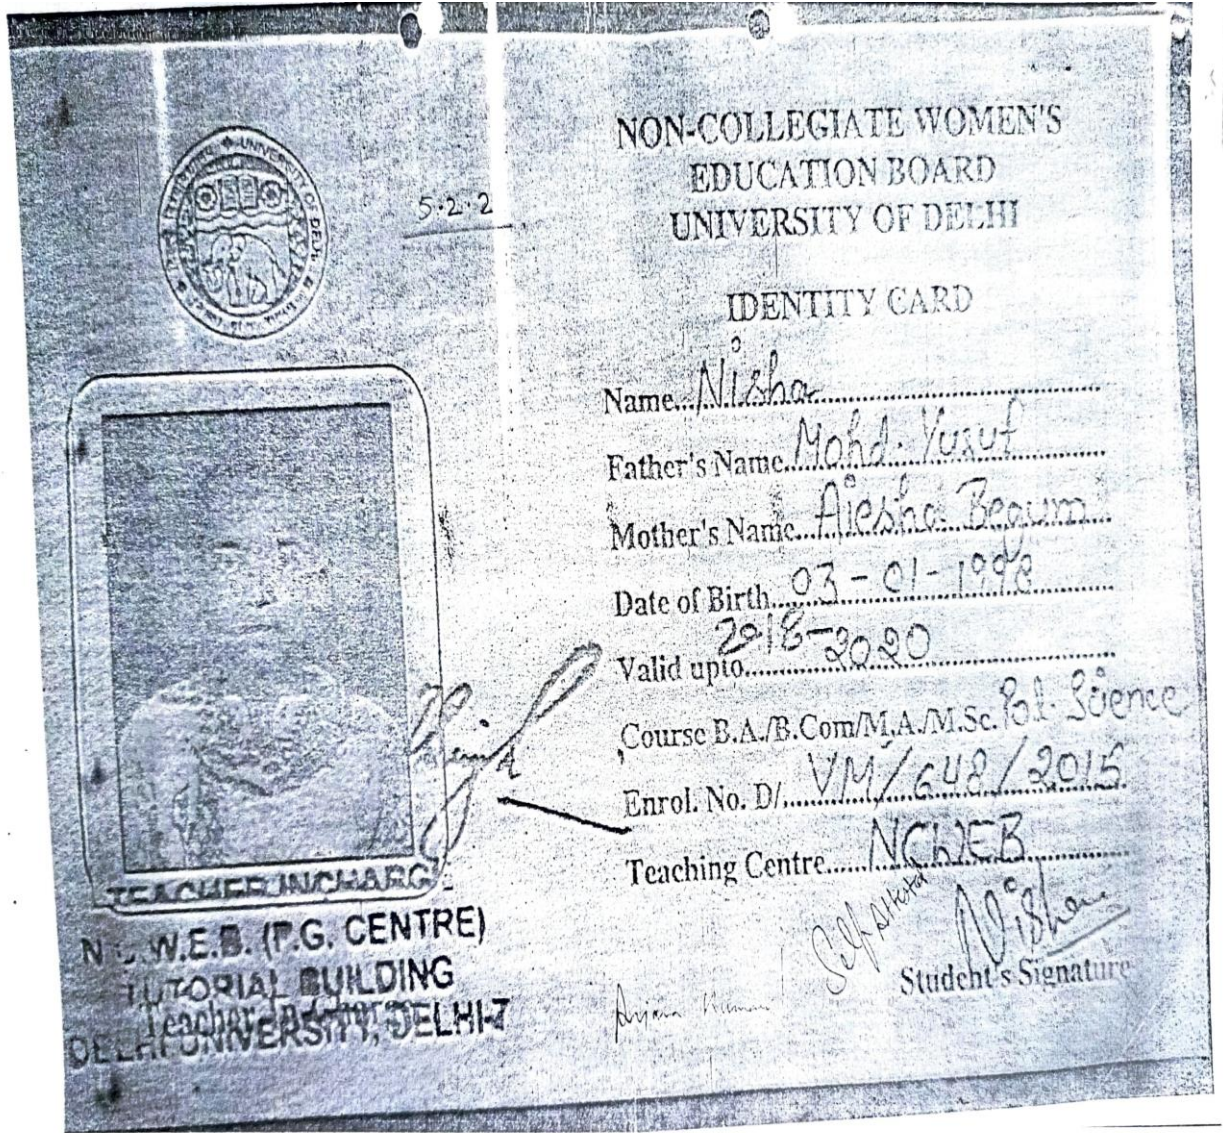 UNIVERSITY OF DELHI
5.2.2
NON-COLLEGIATE WOMEN'S
EDUCATION BOARD
UNIVERSITY OF DELHI
IDENTITY CARD
Name... Nisha
Father's Name... Mohd. Yusuf
Mother's Name... Aiesha Begum
Date of Birth... 03-01-1998
Valid upto... 2018-2020
Course B.A./B.Com/M.A./M.Sc. Pol. Science
Enrol. No. D/... VM/648/2015
Teaching Centre... NCWEB
Self Attested
Nisha
Student's Signature
TEACHER INCHARGE
N.C.W.E.B. (P.G. CENTRE)
TUTORIAL BUILDING
Teacher In-Charge
DELHI UNIVERSITY, DELHI-7